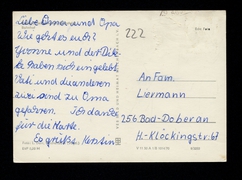 Liebe Oma und Opa
Wie geht es euch?
Yvonne und der Dicke
haben sich eingelebt.
und die anderen
zwei sind zu Oma
gefahren. Ich danke
für die Karte.
Es grüßt Kerstin
222
An Fam.
Liermann
256 Bad-Doberan
H.-Klöckingstr. 67